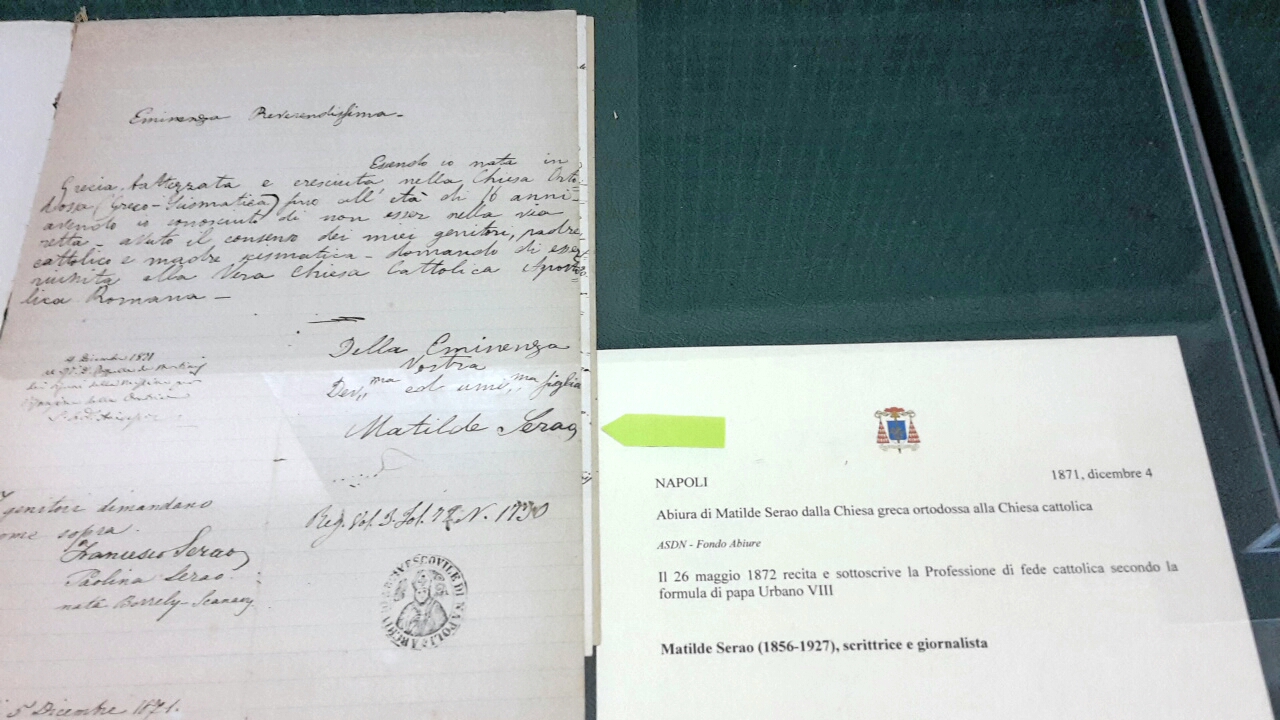 Eminenza Reverendissima -
Essendo io nata in
Grecia battezzata e cresciuta nella Chiesa Orto-
dossa (Greco-Scismatica) fino all' età di 16 anni -
avendo io conosciuto di non esser nella via
retta - avuto il consenso dei miei genitori, padre
cattolico e madre scismatica - domando di esser
riunita alla Vera Chiesa Cattolica Aposto-
lica Romana -
Della Eminenza
Vostra
Dev.ma ed umi.ma figlia
Matilde Serao
4 Dicembre 1871
genitori dimandano
come sopra.
Francesco Serao
Paolina Serao
nata Borrely-
Reg. Vol. 3. Fol. N. 1730
ARCIVESCOVILE DI NAPOLI
5 Dicembre 1871.
NAPOLI
1871, dicembre 4
Abiura di Matilde Serao dalla Chiesa greca ortodossa alla Chiesa cattolica
ASDN - Fondo Abiure
Il 26 maggio 1872 recita e sottoscrive la Professione di fede cattolica secondo la
formula di papa Urbano VIII
Matilde Serao (1856-1927), scrittrice e giornalista